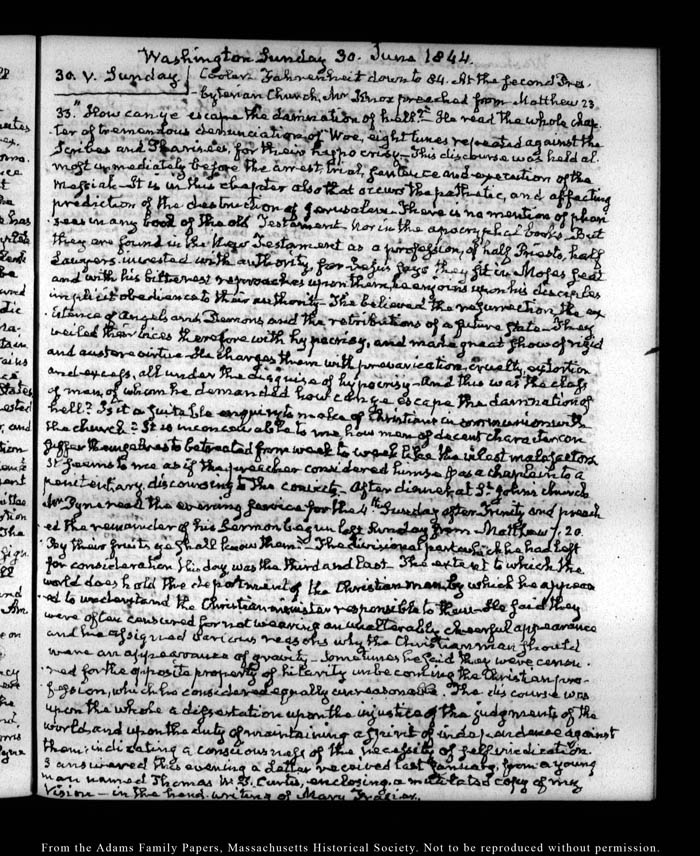 Washington Sunday 30. June 1844.
30. V. Sunday Cooler. Fahrenheit down to 84. At the second Pres-
byterian Church, Mr Knox preached from Matthew 23.
33. "How can ye escape the damnation of hell?" He read the whole chap-
ter of tremendous denunciation of Woe, eight times repeated against the
Scribes and Pharisees, for their hypocrisy. This discourse was held al-
most immediately before the arrest, trial, sentence and execution of the
Messiah. It is in this chapter also that occurs the pathetic, and affecting
prediction of the destruction of Jerusalem. There is no mention of phari-
sees in any book of the old Testament, nor in the apocryphal books. But
they are found in the New Testament as a profession, of half Priests, half
Lawyers invested with authority, for Jesus says they sit in Moses seat
and with his bitterest reproaches upon them, he enjoins upon his disciples
implicit obedience to their authority. The believed the resurrection, the ex-
istence of Angels and Demons, and the retributions of a future state. They
veiled their vices therefore with hypocrisy, and made great show of rigid
and austere virtue. He charges them with prevarication, cruelty, extortion
and excess, all under the disguise of hypocrisy. And this was the class
of men, of whom he demanded how can ye escape the damnation of
hell? Is it a suitable enquiry to make of Christians in communion with
the church? It is inconceivable to me how men of decent character can
suffer themselves to be treated from week to week like the vilest malefactors
It seems to me as if the preacher considered himself as a chaplain to a
penitentiary, discoursing to the convicts. After dinner, at St. Johns church
Mr Pyne read the evening service for the 4th Sunday after Trinity and preach-
ed the remainder of his Sermon begun last Sunday from Matthew 7. 20.
By their fruits ye shall know them. The divisional part which he had left
for consideration this day was the third and last. The extent to which the
world does hold the deportment of the Christian man, by which he appear-
ed to understand the Christian minister responsible to them. He said they
were often censured for not wearing an unalterably cheerful appearance
and he assigned various reasons why the Christian man should
wear an appearance of gravity. Sometimes he said they were censu-
red for the opposite property of hilarity unbecoming the Christian pro-
fession, which he considered equally unreasonable. The discourse was
upon the whole a dissertation upon the injustice of the judgments of the
world, and upon the duty of maintaining a spirit of independence against
them: indicating a consciousness of the necessity of self vindication.
I answered this evening a letter received last January, from a young
man named Thomas W. S. Curtis, enclosing a mutilated copy of my
Vision — in the hand-writing of Mary Frazier.
From the Adams Family Papers, Massachusetts Historical Society. Not to be reproduced without permission.